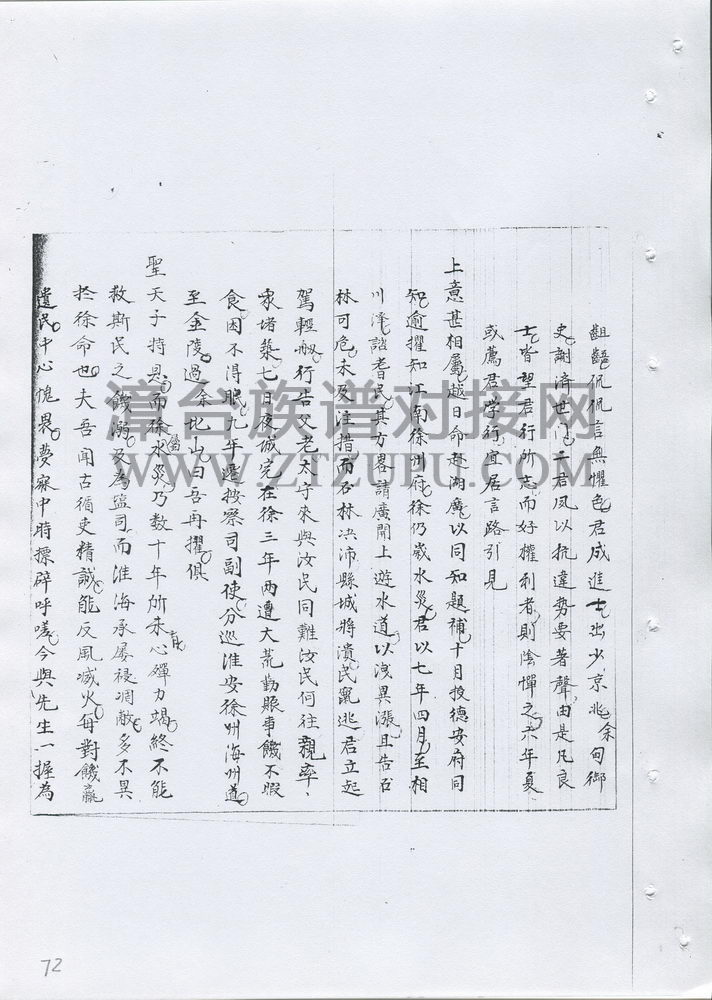 齟齬侃侃言無懼色君成進士出少京兆余甸御
史謝濟世門二君夙以抗違勢要著聲由是凡良
士皆望君行所志而好權利者則陰憚之六年夏
或薦君學行宜居言路引見
上意甚相屬越日命赴湖廣以同知題補十月授德安府同
知逾擢知江南徐州府徐仍歲水災君以七年四月至相
川澤諮耆民具方畧請廣開上遊水道以洩異漲且告石
林可危未及注措而石林决沛縣城將潰民竄逃君立起
駕輕舠行告父老太守來與汝民同難汝民何往親率
衆堵築七日夜城完在徐三年兩遭大荒勤賑事饑不暇
食困不得眠九年遷按察司副使分巡淮安徐州海州道
至金陵過余北山曰吾再擢俱
聖天子特恩而徐水災乃數十年所未有心殫力竭終不能
救斯民之饑溺及為監司而淮海承屢祲凋敝多不異
於徐命也夫吾聞古循吏精誠能反風滅火每對饑羸
遺民中心愧畏夢寐中時摽辟呼嗟今與先生一握為
當
漳台族谱对接网
WWW.ZTZUPU.COM
72